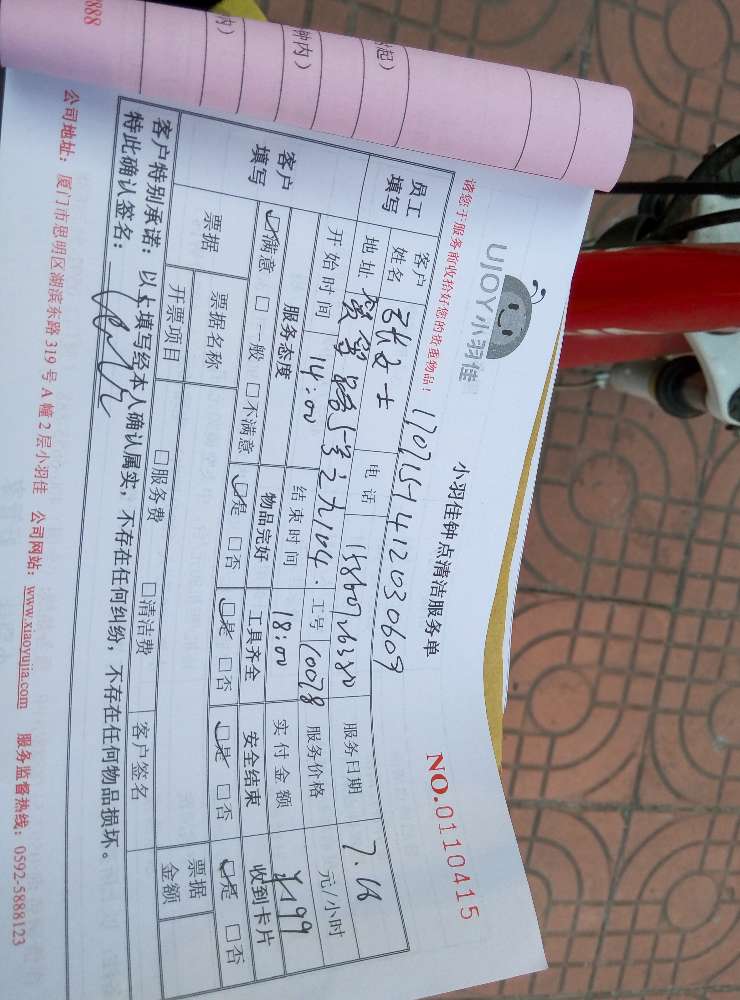 888
内）
钟内）
起）
请您于服务前收拾好您的贵重物品！
UJOY小羽佳
小羽佳钟点清洁服务单
NO.0110415
1707157412030609
员工填写 客户姓名 张女士 电话 服务日期 7.16
地址 服务价格 元/小时
开始时间 14:00 结束时间 18:00 工号 10078 实付金额 ¥199
客户填写 服务态度 物品完好 工具齐全 安全结束 收到卡片
☑满意 □一般 □不满意 ☑是 □否 ☑是 □否 ☑是 □否 ☑是 □否
票据 票据名称 票据金额
开票项目 □服务费 □清洁费 客户签名
客户特别承诺：以上填写经本人确认属实，不存在任何纠纷，不存在任何物品损坏。
特此确认签名：
公司地址：厦门市思明区湖滨东路319号A幢2层小羽佳 公司网站：www.xiaoyujia.com 服务监督热线：0592-5888123